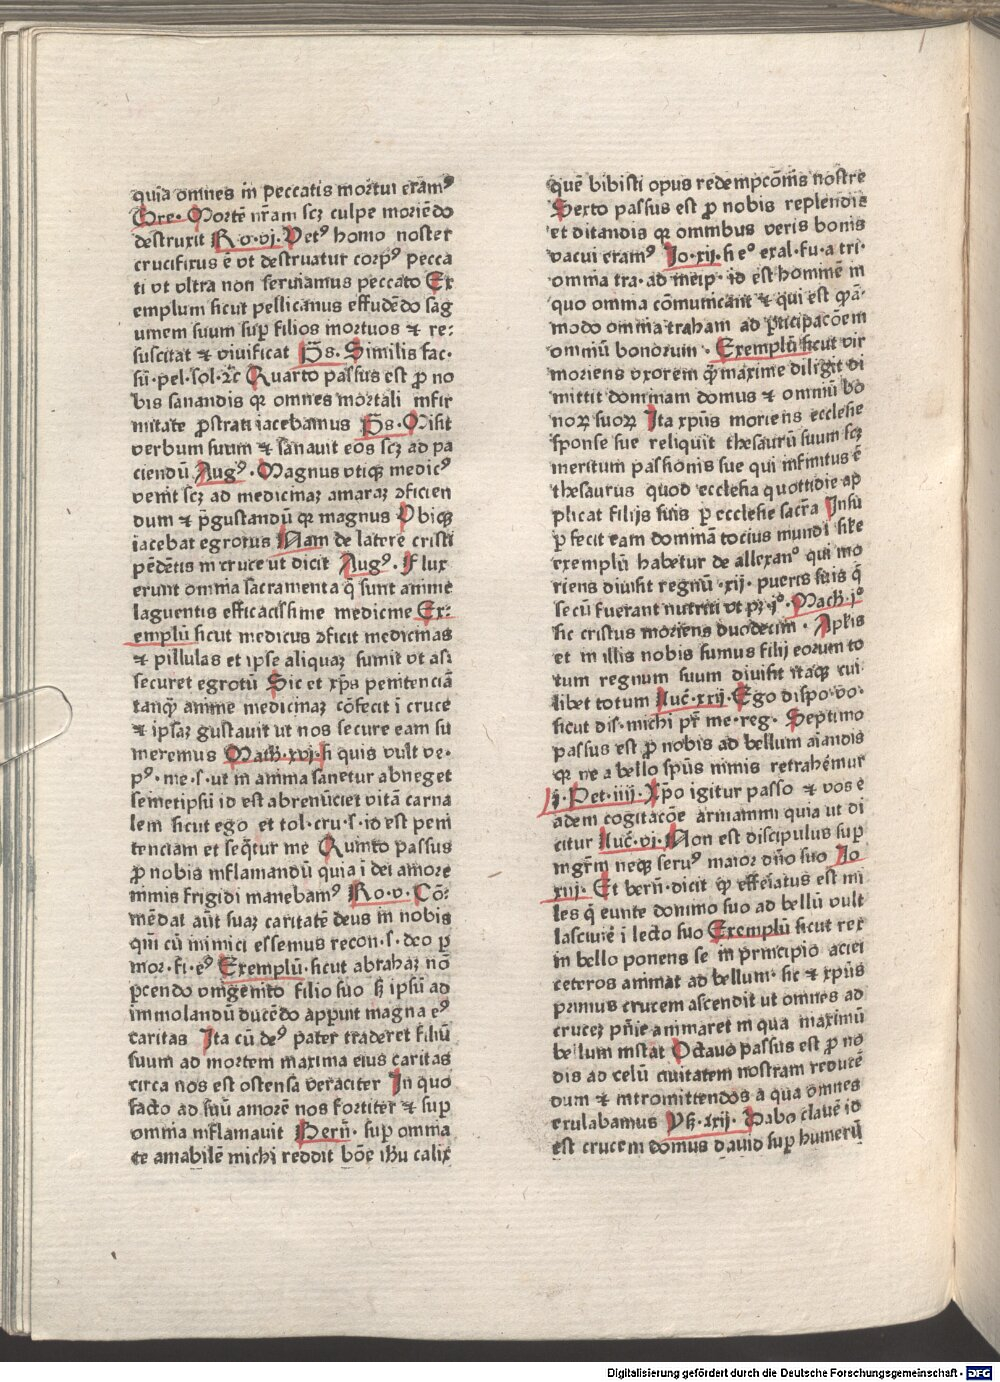 quia omnes in peccatis mortui eramꝰ
Gre. Mortē nr̄am scꝫ culpe moriēdo
destruxit Ro·vj· Vetꝰ homo noster
crucifixus ē vt destruatur corpꝰ pecca
ti vt vltra non seruiamus peccato Ex
emplum sicut pellicanus effudēdo sag
uinem suum suꝑ filios mortuos ⁊ re:
suscitat ⁊ viuificat Ps. Similis fac·
sū·pel·sol·⁊c Quarto passus est ꝓ no
bis sanandis qꝛ omnes mortali infir
mitate ꝓstrati iacebamus Ps. Misit
verbum suum ⁊ sanauit eos scꝫ ad pa
ciendū Augꝰ. Magnus vtiqꝫ medicꝰ
venit scꝫ ad medicinaꝫ amaraꝫ ꝯficien
dum ⁊ p̄gustandū qꝛ magnus Vbiqꝫ
iacebat egrotus Nam de latere cristi
pēdētis in cruce ut dicit Augꝰ. Flux
erunt omnia sacramenta q̄ sunt anime
languentis efficacissime medicine Ex:
emplū sicut medicus ꝯficit medicinas
⁊ pillulas et ipse aliquaꝫ sumit vt as:
securet egrotū Sic et xp̄s penitenciā
tanqꝫ anime medicinaꝫ cōfecit ī cruce
⁊ ipsaꝫ gustauit ut nos secure eam su
meremus Math·xvj·si quis vult ve·
pꝰ·me·s·ut in anima sanetur abneget
semetipsū id est abrenūciet vitā carna
lem sicut ego et tol·cru·s·id est peni
tenciam et seq̄tur me Quinto passus
ꝓ nobis inflamandū quia ī dei amore
nimis frigidi manebamꝰ Ro·v· Cō:
mēdat aūt suaꝫ caritatē deus in nobis
qm̄ cū inimici essemus recon·s·deo ꝑ
mor·fi·eꝰ Exemplū·sicut abrahaꝫ nō
ꝑcendo vnigenito filio suo sꝫ ipsū ad
immolandū ducēdo apparuit magna eꝰ
caritas Ita cū deꝰ pater traderet filiū
suum ad mortem maxima eius caritas
circa nos est ostensa veraciter In quo
facto ad suū amorē nos fortiter ⁊ suꝑ
omnia inflamauit Bern̄. suꝑ omnia
te amabilē michi reddit bōe ihū calix
quē bibisti opus redempcōnis nostre
Sexto passus est ꝓ nobis replendis
et ditandis qꝛ omnibus veris bonis
vacui eramꝰ Jo·xij·si eᵒ exal·fu·a tri·
omnia tra·ad meip̄·id est hominē in
quo omnia cōmunicant ⁊ qui est qͣ̄·
modo omnia traham ad p̄ticipacōem
omniū bonorum · Exemplū sicut vir
moriens vxorem qͣ̄ maxime diligit di
mittit dominam domus ⁊ omniū bo
noꝝ suoꝝ Ita xp̄us moriens ecclesie
sponse sue reliquit thesaurū suum scꝫ
meritum passionis sue qui infinitus ē
thesaurus quod ecclesia quottidie ap
plicat filijs suis ꝑ ecclesie sacrā Insu
ꝑ fecit eam dominā tocius mundi sile
exemplū habetur de allexanᵒ qui mo
riens diuisit regnū·xij· pueris suis q̄
secū fuerant nutriti vt pꝫ·jᵒ·Mach·jᵒ
sic cristus moriens duodecim · Aplis
et in illis nobis sumus filij eorum to
tum regnum suum diuisit itaqꝫ cui
libet totum Luc̄·xxij·Ego dispo·vo·
sicut dis·michi pr̄ me·reg· Septimo
passus est ꝓ nobis ad bellum aīandis
qꝛ ne a bello sp̄us nimis retrahēmur
j·Pet·iiij·Xp̄o igitur passo ⁊ vos e
adem cogitacōe armamini quia ut di
citur Luc̄·vj·Non est discipulus suꝑ
mgr̄m neqꝫ seruꝰ maior dn̄o suo Jo
xiij· Et bern̄·dicit ꝙ effeiatus est mi
les q̄ eunte domino suo ad bellū vult
lasciuiē ī lecto suo Exemplū sicut rex
in bello ponens se in principio aciei
ceteros animat ad bellum· sic ⁊ xp̄us
primus crucem ascendit ut omnes ad
cruceꝫ pn̄ie animaret in qua maximū
bellum instat Octauo passus est ꝓ no
bis ad celū ciuitatem nostram reducē
dum ⁊ intromittendos a qua omnes
exulabamus Ys·xxij· Dabo clauē id
est crucem domus dauid suꝑ humerū
Digitalisierung gefördert durch die Deutsche Forschungsgemeinschaft - DFG